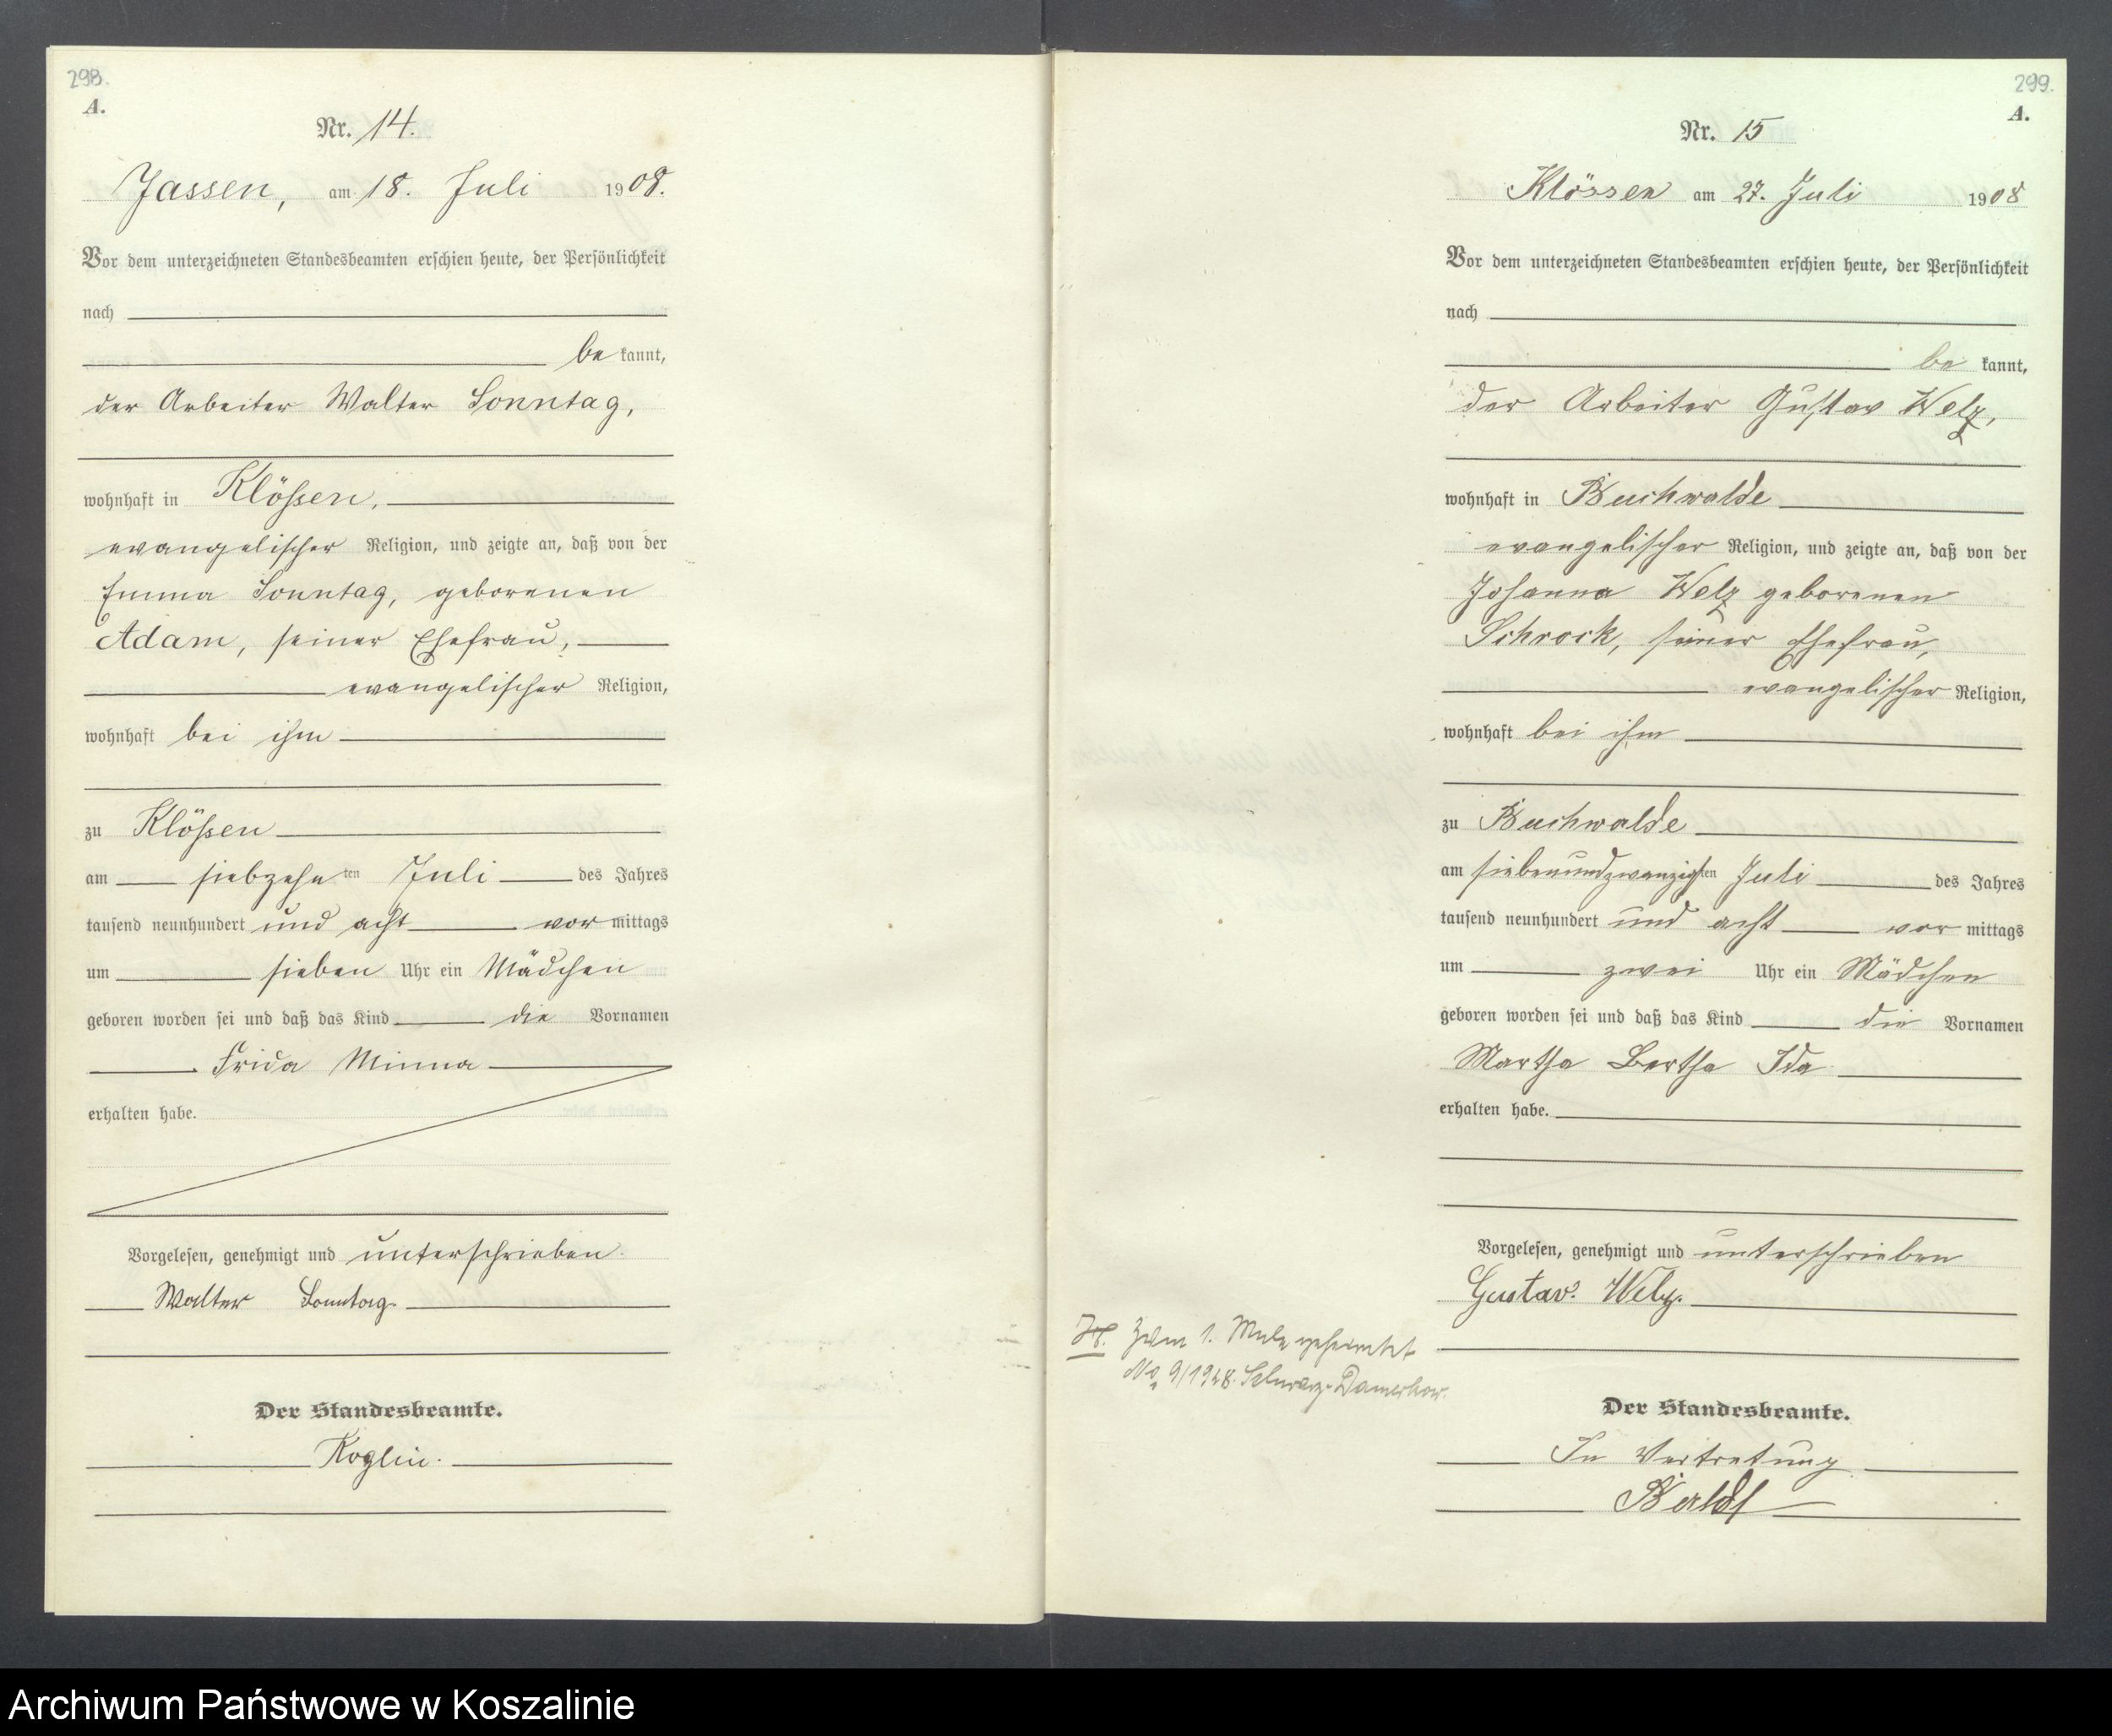 298.
A.
Nr. 14.
Jassen, am 18. Juli 1908.
Vor dem unterzeichneten Standesbeamten erschien heute, der Persönlichkeit
nach
be kannt,
der Arbeiter Walter Sonntag,
wohnhaft in Klößen,
evangelischer Religion, und zeigte an, daß von der
Emma Sonntag, geborenen
Adam, seiner Ehefrau,
evangelischer Religion,
wohnhaft bei ihm
zu Klößen
am siebzehnten Juli des Jahres
tausend neunhundert und acht vormittags
um sieben Uhr ein Mädchen
geboren worden sei und daß das Kind die Vornamen
Frida Minna
erhalten habe.
Vorgelesen, genehmigt und unterschrieben.
Walter Sonntag.
Der Standesbeamte.
Koglin.
299.
A.
Nr. 15
Klössen am 27. Juli 1908
Vor dem unterzeichneten Standesbeamten erschien heute, der Persönlichkeit
nach
be kannt,
der Arbeiter Gustav Welz,
wohnhaft in Buchwalde
evangelischer Religion, und zeigte an, daß von der
Johanna Welz geborenen
Schrock, seiner Ehefrau,
evangelischer Religion,
wohnhaft bei ihm
zu Buchwalde
am siebenundzwanzigsten Juli des Jahres
tausend neunhundert und acht vormittags
um zwei Uhr ein Mädchen
geboren worden sei und daß das Kind die Vornamen
Martha Bertha Ida
erhalten habe.
Vorgelesen, genehmigt und unterschrieben
Gustav Welz.
zum 1. Male geheiratet
No 9/1928. Schwarz-Damerkow.
Der Standesbeamte.
In Vertretung
Archiwum Państwowe w Koszalinie